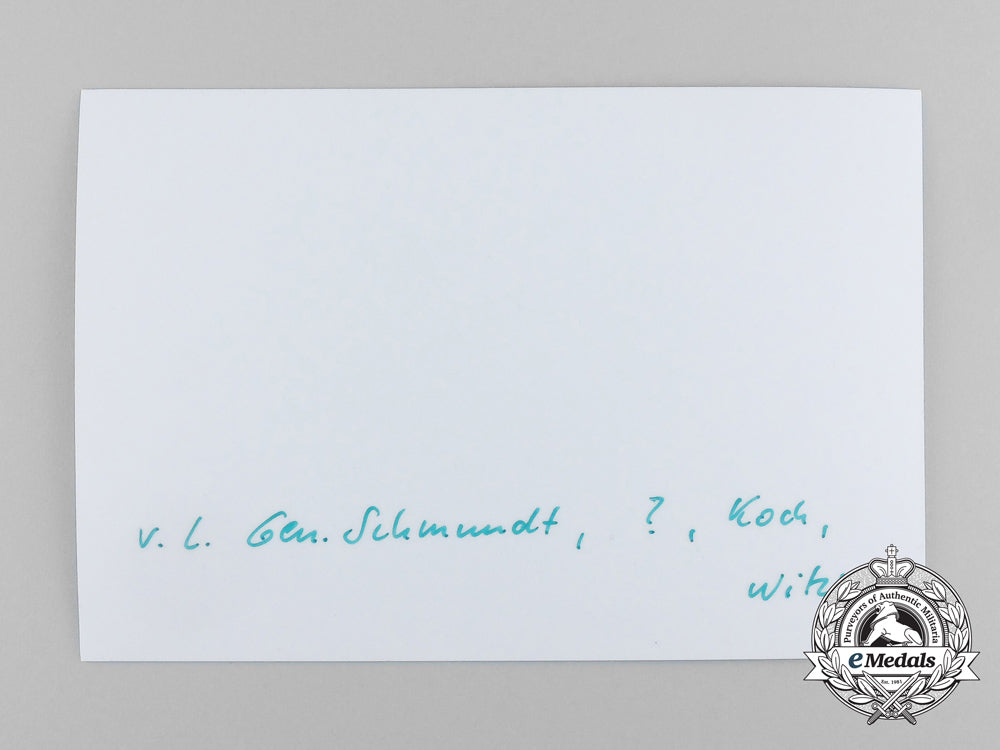 v. l. Gen. Schmundt, ?, Koch,
Purveyors of Authentic Militaria
eMedals
Est. 1981